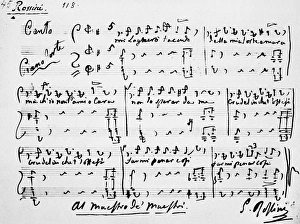 Rossini. 118
Canto
mi lagnerò tacendo
della mia sorte amara
Piano Forte
ma ch'io non t'ami o cara
non lo sperar da me
Crudel in che t'offesi
Crudel in che t'offesi
farmi penar così
farmi penar così
Al Maestro de' Maestri.
G. Rossini